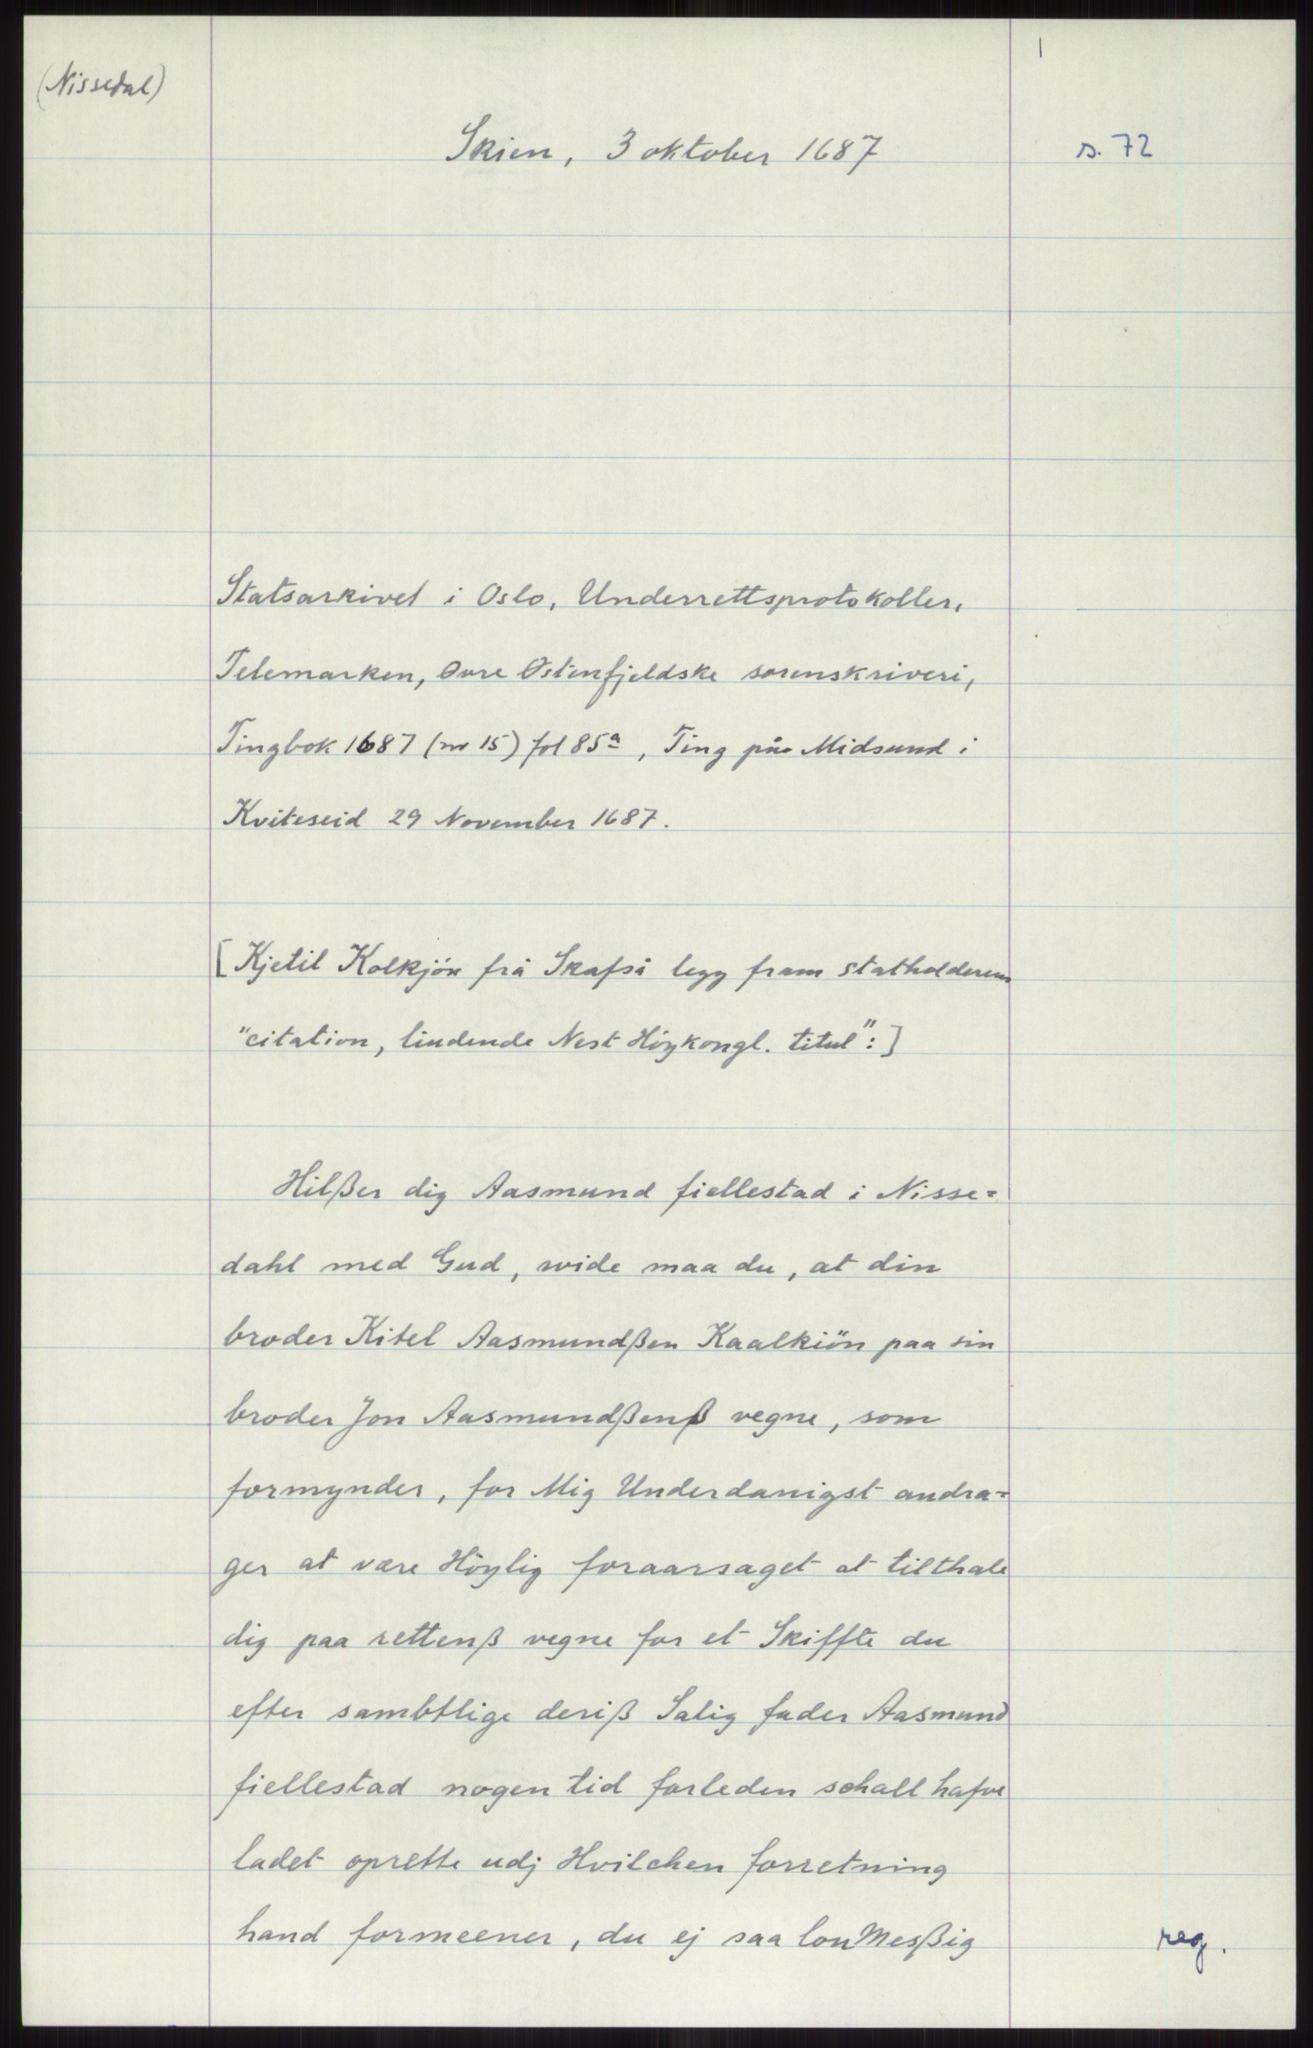 1
(Nissedal)
Skien, 3 oktober 1687
s. 72
Statsarkivet i Oslo, Underrettsprotokoller,
Telemarken, Øvre Østenfjeldske sorenskriveri,
Tingbok 1687 (nr 15) fol 85a, Ting på Midsund i
Kviteseid 29 November 1687.
[Kjetil Kolkjön frå Skafså legg fram statholderens
"citation, liudende Nest Höykongl. titul":]
Hilßer dig Aasmund fiellestad i Nisse=
dahl med Gud, wide maa du, at din
broder Kitel Aasmundßen Kaalkiön paa sin
broder Jon Aasmundßenß vegne, som
formynder, for Mig Underdanigst andra=
ger at være Höylig foraarsaget at tilthale
dig paa rettenß vegne for et Skiffte du
efter sambtlige deriß Salig fader Aasmund
fiellestad nogen tid forleden schall hafve
ladet oprette udj Hvilchen forretning
hand formeener, du ej saa louMesßig
reg.